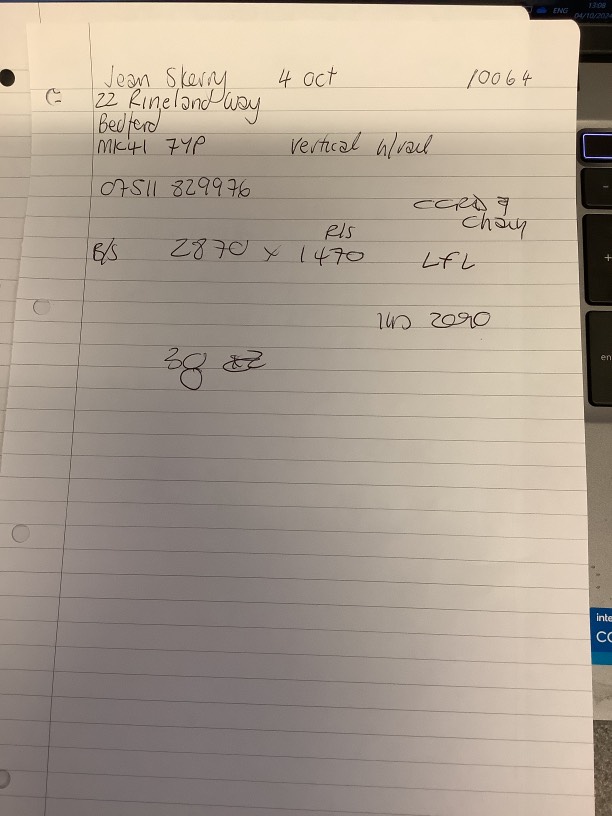 Jean Skerry 4 Oct 10064
22 Rineland Way
Bedford
MK41 7YP Vertical h/rail
07511 829976
Chain
R/S
B/S 2870 x 1470 LFL
2090
38
ENG 13:08
04/10/202
inte